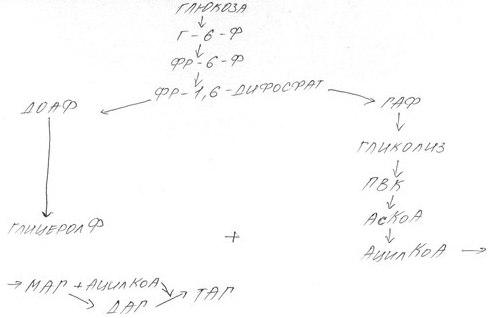 ГЛЮКОЗА
Г-6-Ф
ФР-6-Ф
ФР-1,6-ДИФОСФАТ
ДОАФ
ГАФ
ГЛИКОЛИЗ
ПВК
АсКоА
ГЛИЦЕРОЛФ
+
АЦИЛКоА →
→ МАГ + АЦИЛКОА
ДАГ
ТАГ